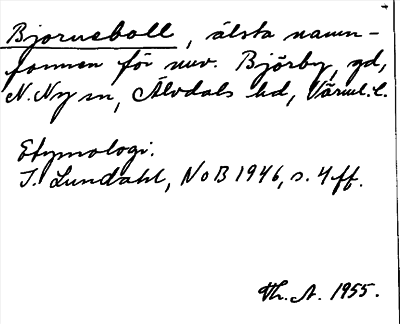 Bjorneboll, älsta namn-
formen för nuv. Björby, gd,
N. Ny sn, Älvdals hd, Värml. l.
Etymologi:
I. Lundahl, NoB 1946, s. 4 ff.
Th. A. 1955.